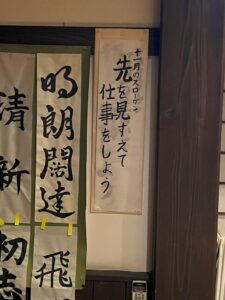 十一月のスローガン
先を見すえて
仕事をしよう
明朗闊達
飛
清新
初志